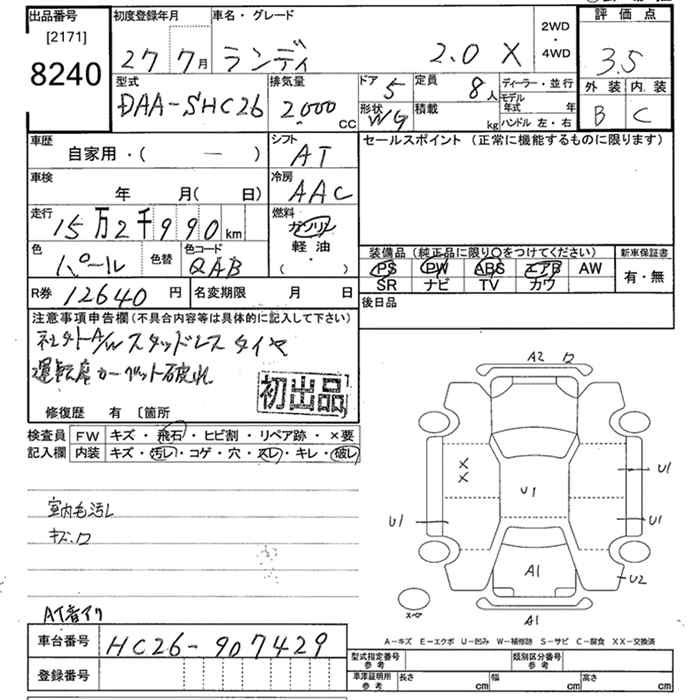 出品番号
[2171]
8240
初度登録年月
27 7月
車名・グレード
ランディ 2.0 X
2WD
・
4WD
評価点
3.5
外装 内装
B C
型式
DAA-SHC26
排気量
2000 cc
ドア 5
定員 8人
形状 WG
積載 kg
ディーラー・並行
モデル年式 年
ハンドル 左・右
車歴
自家用・( — )
シフト
AT
セールスポイント (正常に機能するものに限ります)
車検
年 月( 日)
冷房
AAC
走行
15万2千990km
燃料
ガソリン
軽油
( ・ )
色
パール
色替
色コード
QAB
装備品 (純正品に限り〇をつけてください)
PS PW ABS エアB AW
SR ナビ TV カワ
新車保証書
有・無
R券 12640円
名変期限 月 日
後日品
注意事項申告欄(不具合内容等は具体的に記入して下さい)
社外A/W スタッドレスタイヤ
運転席カーペット破れ
初出品
修復歴 有 〔箇所
検査員
記入欄
FW キズ・飛石・ヒビ割・リペア跡・×要
内装 キズ・汚レ・コゲ・穴・スレ・キレ・破レ
室内毛汚レ
キズ、ワ
A2 ワ
X
X
U1
U1
U1
U1
A1
U2
スペア
A1
A-キズ E-エクボ U-凹み W-補修跡 S-サビ C-腐食 XX-交換済
車台番号 HC26-907429
登録番号
型式指定番号
参考
類別区分番号
参考
車庫証明所
参考
長さ cm
幅 cm
高さ cm